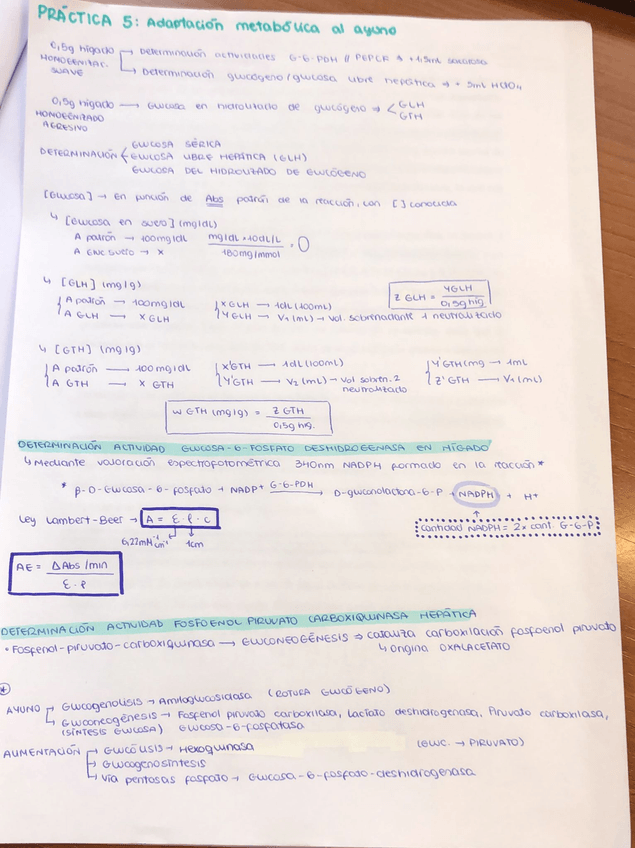 PRÁCTICA 5: Adaptación metabólica al ayuno
0,5g hígado → Determinación actividades G-6-PDH // PEPCK → + 1,5mL sacarosa
HOMOGENIZAC. SUAVE → Determinación glucógeno/glucosa libre hepática → + 5mL HClO4
0,5g hígado → Glucosa en hidrolizado de glucógeno → < GLH
HOMOGENIZADO AGRESIVO GTH
GLUCOSA SÉRICA
DETERMINACIÓN GLUCOSA LIBRE HEPÁTICA (GLH)
GLUCOSA DEL HIDROLIZADO DE GLUCÓGENO
[Glucosa] → en función de Abs patrón de la reacción, con [ ] conocida
↳ [Glucosa en suero] (mg/dL)
A patrón → 100mg/dL mg/dL • 10dL/L
A ENC SUERO → X 180mg/mmol
↳ [GLH] (mg/g)
A patrón → 100mg/dL X GLH → 1dL (100mL) Z GLH = YGLH / 0,5g hig
A GLH → X GLH Y GLH → V1 (mL) → vol. sobrenadante 1 neutralizado
↳ [GTH] (mg/g)
A patrón → 100mg/dL X'GTH → 1dL (100mL) Y'GTH (mg → 1mL
A GTH → X GTH Y'GTH → V2 (mL) → vol sobren. 2 neutralizado Z' GTH → V1 (mL)
W GTH (mg/g) = Z GTH / 0,5g hig.
DETERMINACIÓN ACTIVIDAD GLUCOSA-6-FOSFATO DESHIDROGENASA EN HÍGADO
↳ Mediante valoración espectrofotométrica 340nm NADPH formado en la reacción *
* β-D-Glucosa-6-fosfato + NADP+ G-6-PDH → D-gluconolactona-6-P + NADPH + H+
Ley Lambert-Beer → A = ε · l · c
6,22mM⁻¹cm⁻¹ 1cm
Cantidad NADPH = 2x cant. G-6-P
AE = ΔAbs/min / ε · l
DETERMINACIÓN ACTIVIDAD FOSFOENOL PIRUVATO CARBOXIQUINASA HEPÁTICA
• Fosfenol-piruvato-carboxiquinasa → GLUCONEOGÉNESIS ⇒ cataliza carboxilación fosfoenol piruvato
↳ origina OXALACETATO
*
AYUNO → Glucogenolisis → Amiloglucosidasa (ROTURA GLUCÓGENO)
→ Gluconeogénesis → Fosfenol piruvato carboxilasa, Lactato deshidrogenasa, Piruvato carboxilasa,
(SÍNTESIS GLUCOSA) Glucosa-6-fosfatasa
AUMENTACIÓN → Glucólisis → Hexoquinasa (GLUC. → PIRUVATO)
→ Glucogenosíntesis
→ Vía pentosas fosfato → Glucosa-6-fosfato-deshidrogenasa